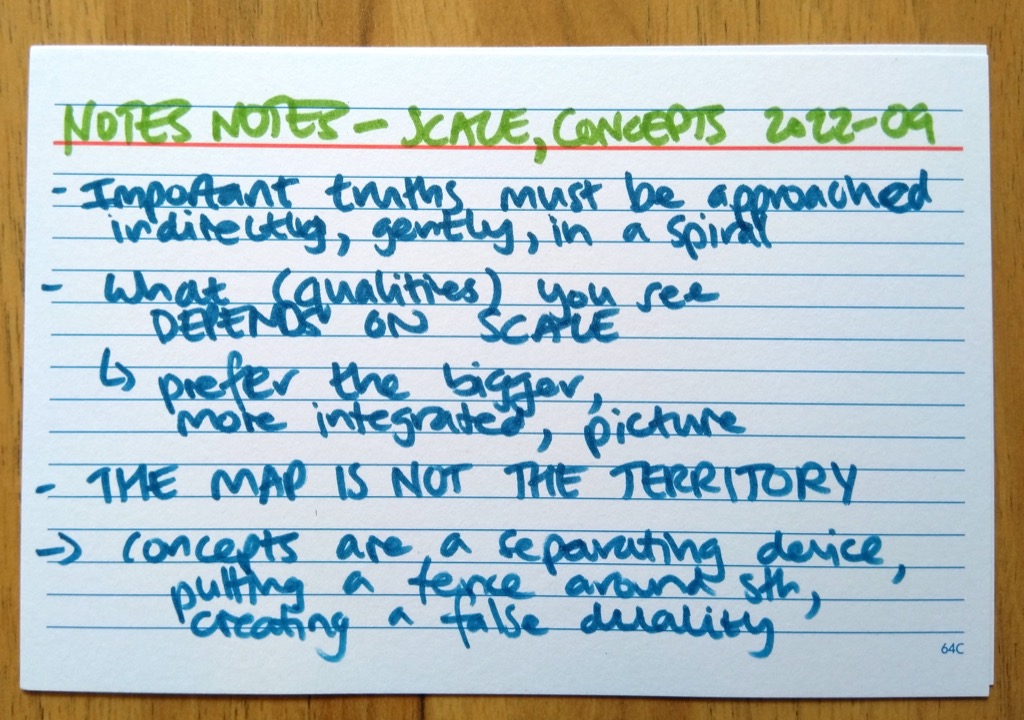 NOTES NOTES - SCALE, CONCEPTS 2022-09
- Important truths must be approached
indirectly, gently, in a spiral
- What (qualities) you see
DEPENDS ON SCALE
↳ prefer the bigger,
more integrated, picture
- THE MAP IS NOT THE TERRITORY
→ concepts are a separating device,
putting a fence around sth,
creating a false duality
64C